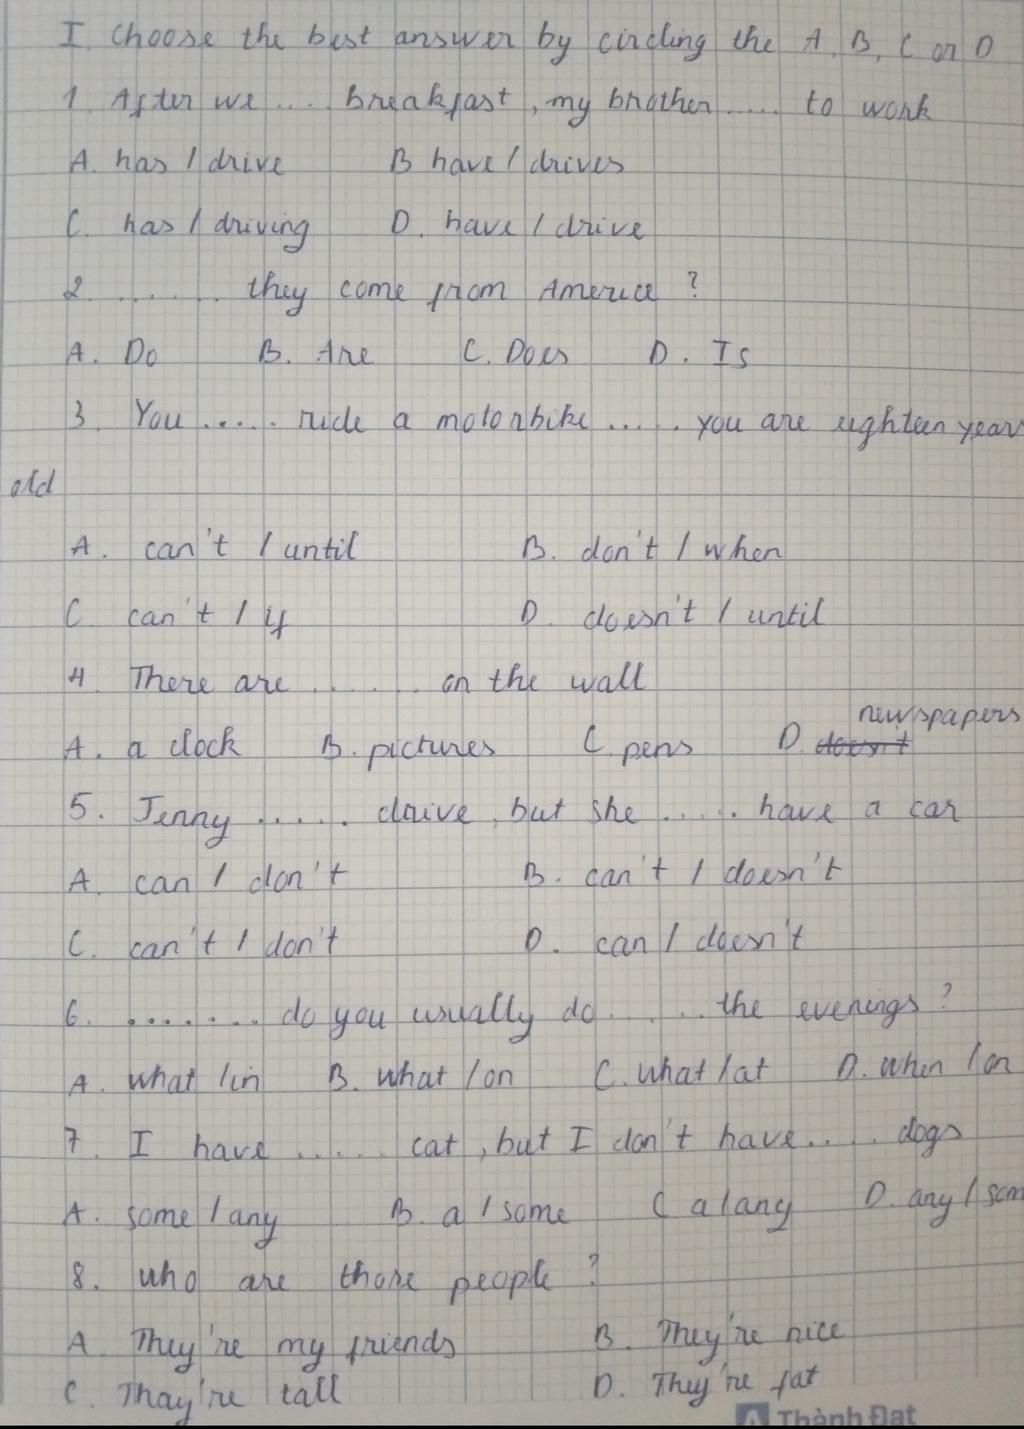 I. Choose the best answer by circling the A, B, C or D
1. After we .... breakfast, my brother ..... to work
A. has / drive B have / drives
C. has / driving D. have / drive
2. ....... they come from America ?
A. Do B. Are C. Does D. Is
3. You ..... ride a motorbike ..... you are eighteen years
old
A. can't / until B. don't / when
C can't / if D. doesn't / until
4. There are ....... on the wall
newspapers
A. a clock B. pictures C. pens D. doesn't
5. Jenny ..... drive, but she ..... have a car
A. can / don't B. can't / doesn't
C. can't / don't D. can / doesn't
6. ....... do you usually do ...... the evenings ?
A. what / in B. what / on C. what / at D. when / on
7. I have ..... cat, but I don't have ..... dogs
A. some / any B. a / some C a / any D. any / som
8. who are those people ?
A They're my friends B. They're nice
C. Thay're tall D. They're fat
Thành Đạt